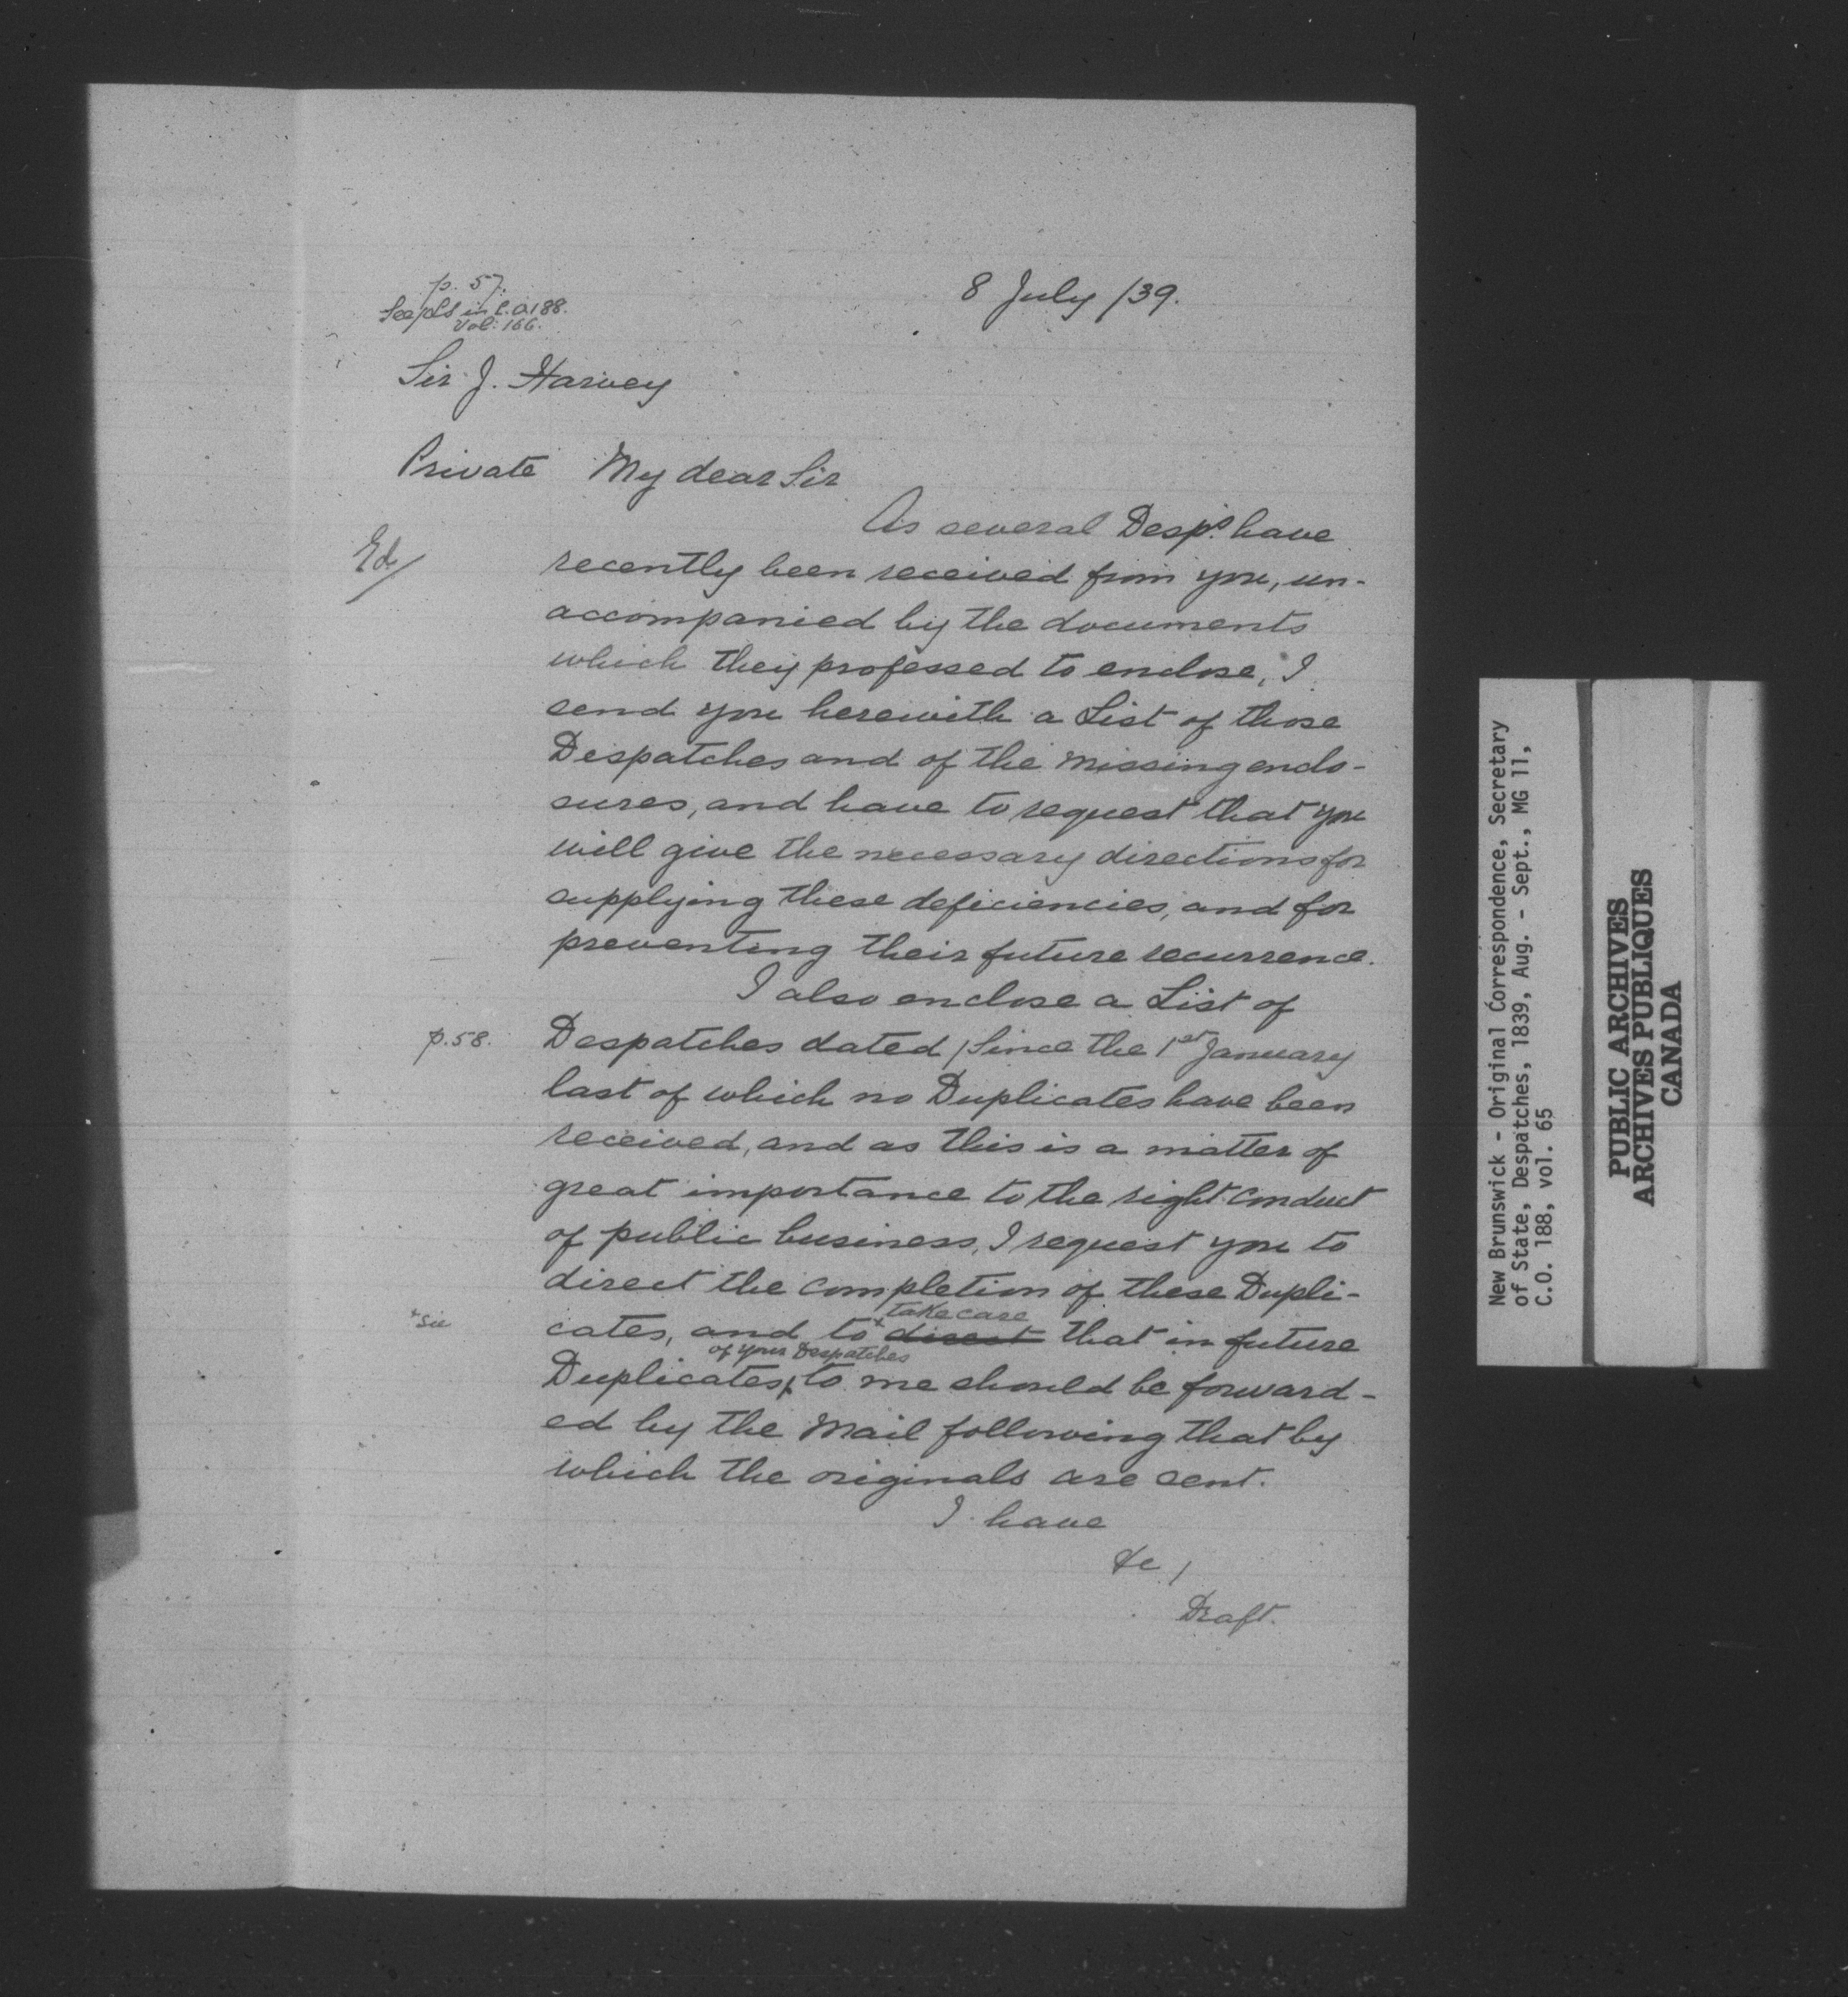 p. 57.
8 July /39.
in C.O. 188.
Vol: 166.
Sir J. Harvey
Private My dear Sir
As several Desps. have
recently been received from you, un-
accompanied by the documents
which they professed to enclose, I
send you herewith a List of those
Despatches and of the missing enclo-
sures, and have to request that you
will give the necessary directions for
supplying these deficiencies, and for
preventing their future recurrence.
I also enclose a List of
p.58. Despatches dated / Since the 1st January
last of which no Duplicates have been
received, and as this is a matter of
great importance to the right conduct
of public business, I request you to
direct the completion of these Dupli-
take care
+Sic cates, and to + direct that in future
of your Despatches
Duplicates, to me should be forward-
ed by the Mail following that by
which the originals are sent.
I have
&c /
Draft.
New Brunswick - Original Correspondence, Secretary
of State, Despatches, 1839, Aug. - Sept., MG 11,
C.O. 188, vol. 65
PUBLIC ARCHIVES
ARCHIVES PUBLIQUES
CANADA